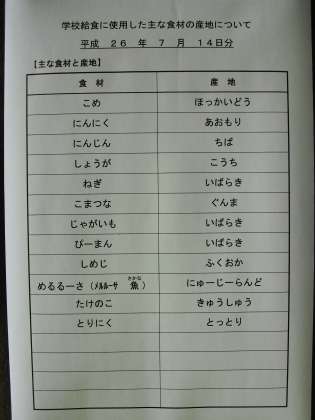 学校給食に使用した主な食材の産地について
平成 26 年 7 月 14日分
【主な食材と産地】
食 材 産 地
こめ ほっかいどう
にんにく あおもり
にんじん ちば
しょうが こうち
ねぎ いばらき
こまつな ぐんま
じゃがいも いばらき
ぴーまん いばらき
しめじ ふくおか
さかな
めるるーさ（ﾒﾙﾙｰｻ 魚） にゅーじーらんど
たけのこ きゅうしゅう
とりにく とっとり